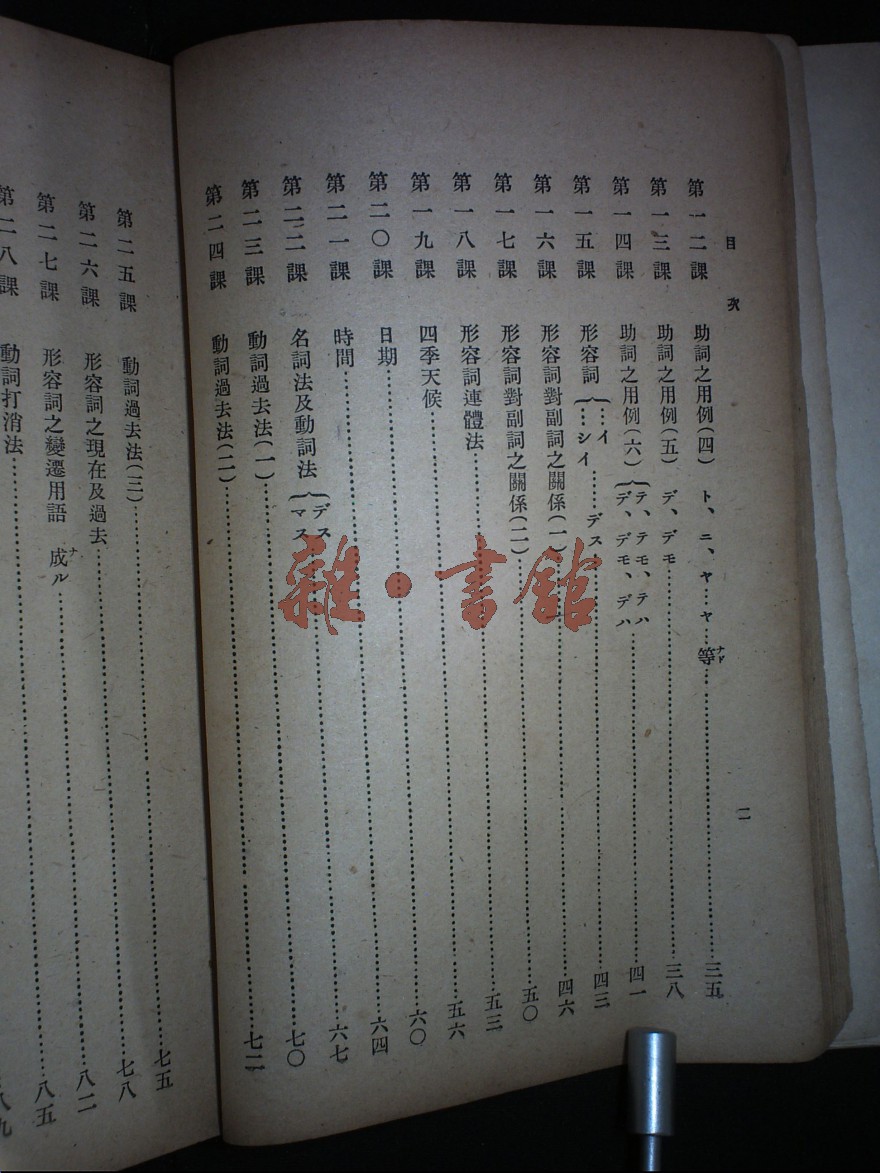 目次 二
第一二課 助詞之用例(四) ト、ニ、ヤ…ヤ…等ナド……三五
第一三課 助詞之用例(五) デ、デモ……三八
第一四課 助詞之用例(六) {テ、テモ、テハ デ、デモ、デハ……四一
第一五課 形容詞 {…イ …シイ ……デス……四三
第一六課 形容詞對副詞之關係(一)……四六
第一七課 形容詞對副詞之關係(二)……五〇
第一八課 形容詞連體法……五三
第一九課 四季天候……五六
第二〇課 日期……六〇
第二一課 時間……六四
第二二課 名詞法及動詞法 {デス マス……六七
第二三課 動詞過去法(一)……七〇
第二四課 動詞過去法(二)……七二
第二五課 動詞過去法(三)……七五
第二六課 形容詞之現在及過去……七八
第二七課 形容詞之變遷用語 成ナル……八二
第二八課 動詞打消法……八五
八九
雜·書館